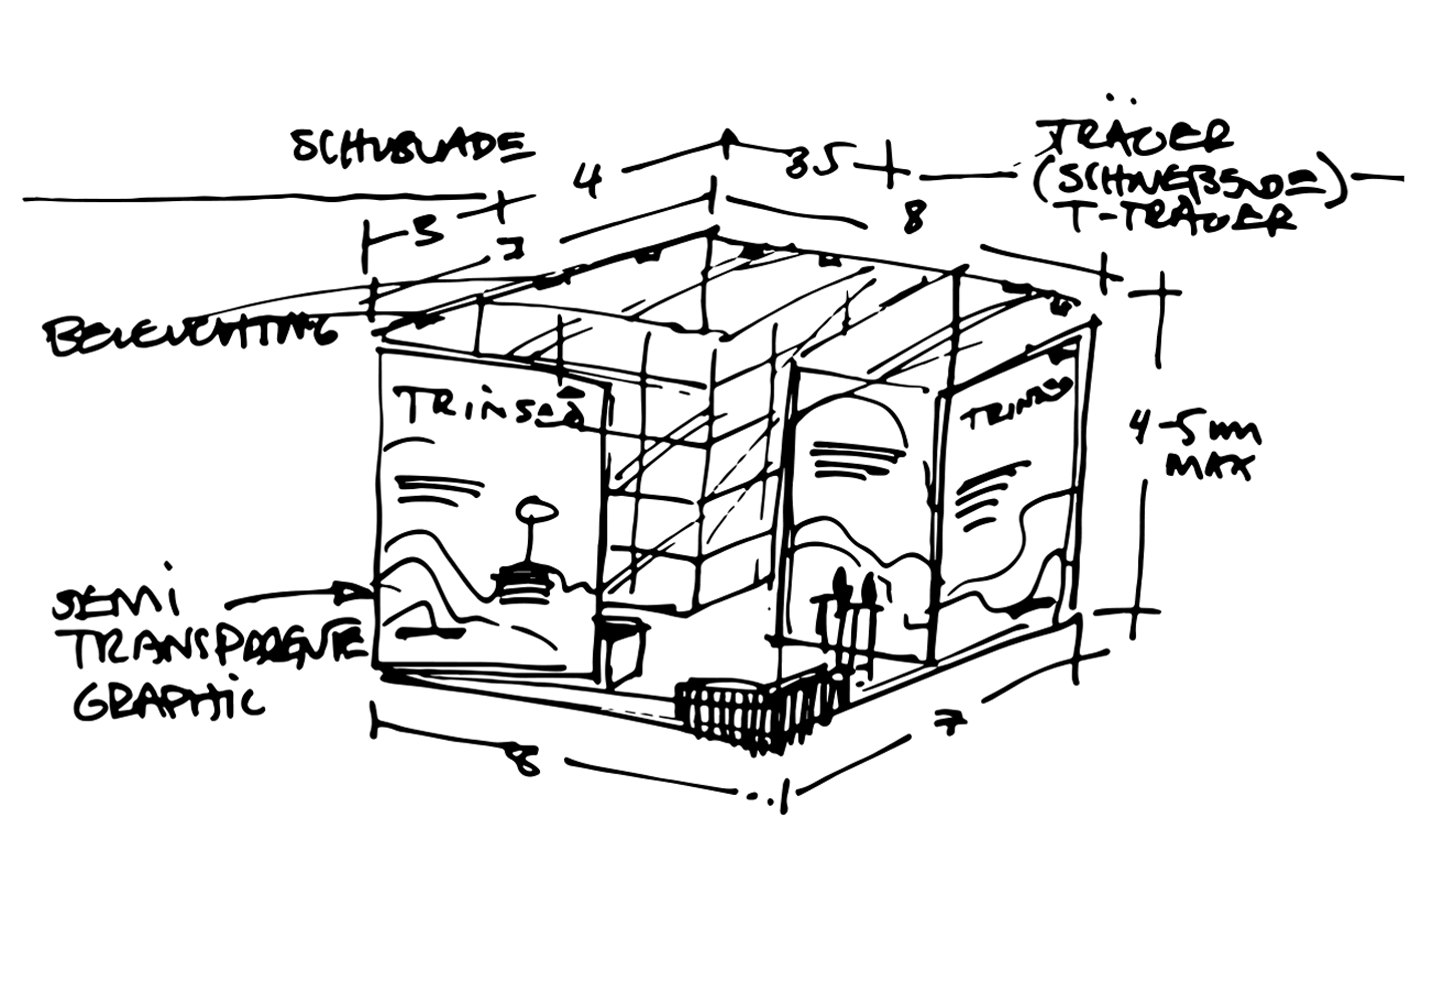 SCHUBLADE
4
3 5
TRÄGER
(SCHWEBENDE)
T-TRÄGER
3
7
8
BELEUCHTUNG
TRINSEO
TRINSEO
4-5 m
MAX
SEMI
TRANSPARENTE
GRAPHIC
8
7